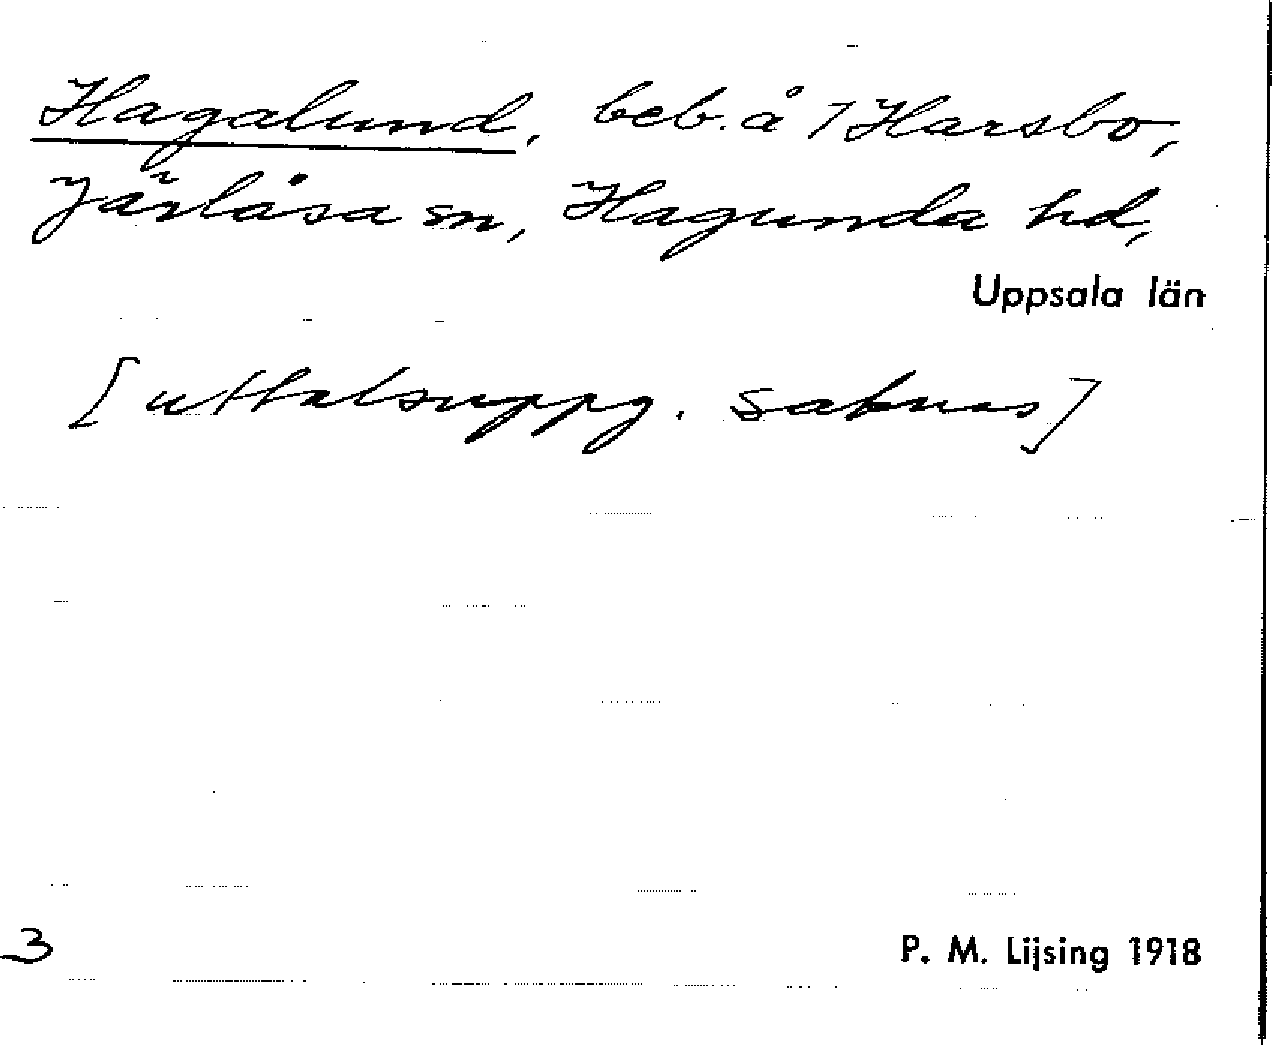 Hagalund, beb. å 1 Harsbo,
Järlåsa sn, Hagunda hd,
Uppsala län
[uttalsuppg. saknas]
3
P. M. Lijsing 1918